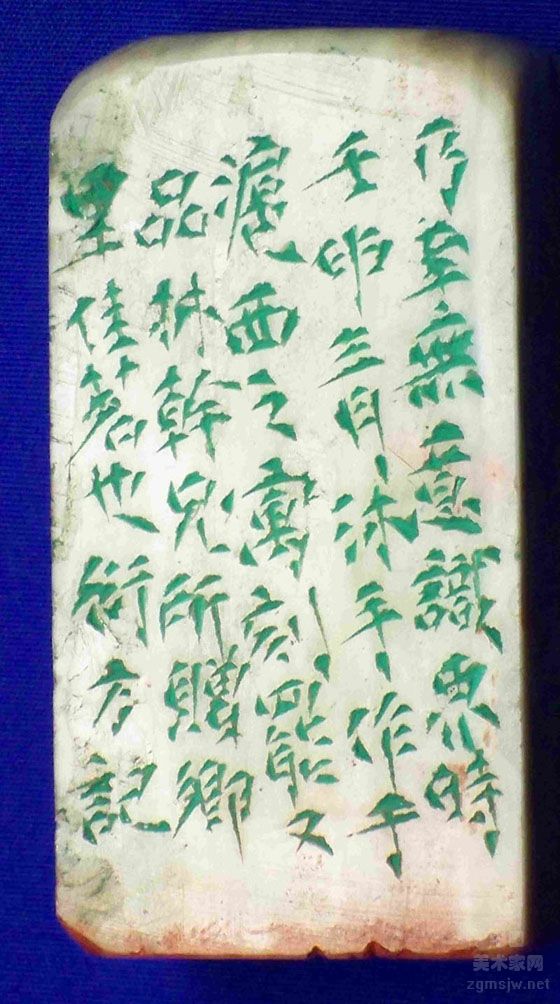 乃至無意識界時
壬申三月沐手作于
滬西之寓刻罷又
品林幹兄所贈鄉
里佳茗也衍方記
美术家网
zgmsjw.net